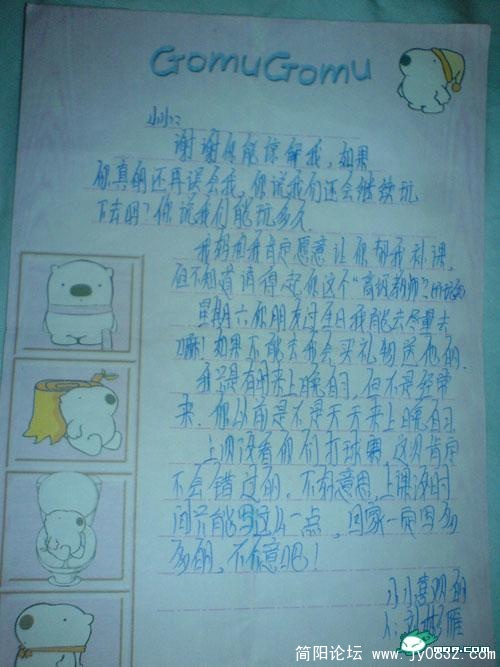 GomuGomu
小小:
谢谢你能谅解我,如果
你真的还再误会我,你说我们还会继续玩
下去吗?你说我们能玩多久.
我妈和我肯定愿意让你帮我补课,
但不知道请得起你这个"高级教师"
星期六你朋友过生日我能去尽量去
嘛!如果不能去我会买礼物送他的.
我只是有时来上晚自习,但不是经常
来.你以前是不是天天来上晚自习
上次没看你们打球赛,这次肯定
不会错过的.不好意思,上课没时
间只能写这么一点,回家一定写多
多的,不介意吧!
小小喜欢的
人:刘
简阳论坛 www.jy0832.com